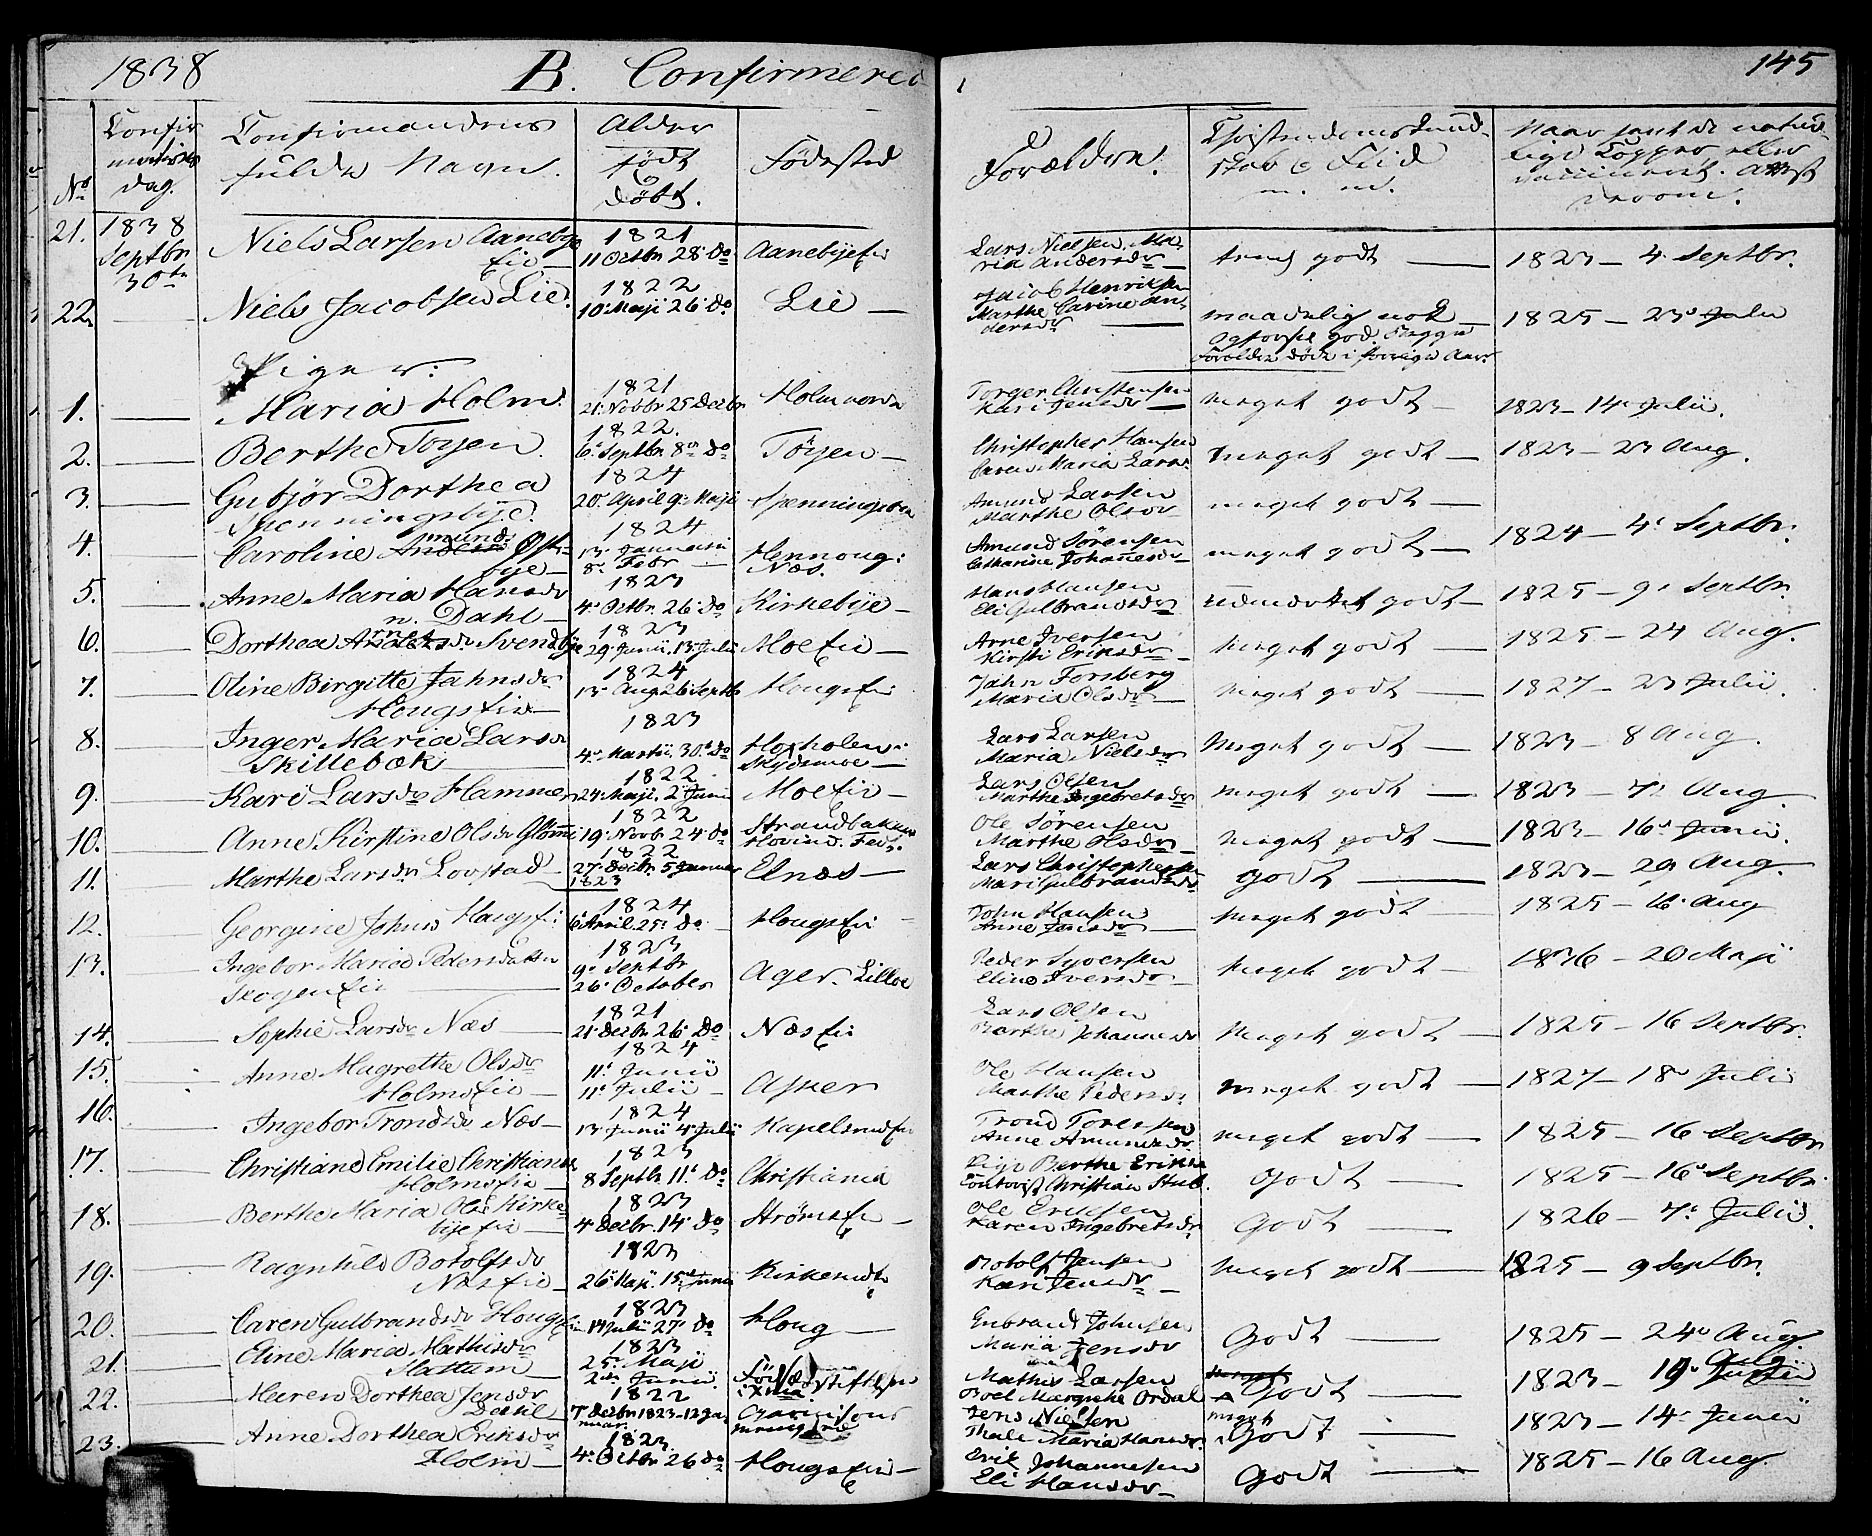 1838 B. Confirmerede 145
No Confirmations dag. Confirmandens fulde Navn. Alder født og døbt. Fødested Forældre. Christendoms Kundskab & Flid m. m. Naar havt de naturlige Kopper eller vaccineret.
21. 1838 Septbr 30te Niels Larsen Aanebye Eie 1821 11 Octbr 28 Do Aanebyeeie Lars Nielsen, Maria Andersdr temlig godt 1823 – 4 Septbr.
22. Niels Jacobsen Lie. 1822 10 Maji 26 Do Lie Jacob Henriksen Marthe Carine Andersdr maadelig nok 1825 – 23 Julii
Opførsel god. Begge Forældre døde i forrige Aar.
Piger:
1. Maria Holm. 1821 21 Novbr 25 Decbr Holm Torger Christensen Kari Jensdr meget godt 1823 – 14 Julii.
2. Berthe Tøyen. 1822. 6 Septbr. 8 Do Tøyen Christopher Hansen Caren Maria Larsd. meget godt 1823 – 23 Aug.
3. Gubjør Dorthea Spenningsbye. 1824 20 April 9 Maji Spenningsbye Amund Larsen Marthe Olsdr meget godt
4. Caroline Anders munds Østbye 1824 13 Januari 8 Febr Hennoug: Næs. Amund Sørensen Catharine Johanesdr meget godt 1824 – 4 Septbr.
5. Anne Maria Hansdr n. Dahl 1823 4 Octbr. 26 Do Kirkebye Hans Hansen Eli Gulbrandsdr udmærket godt 1825 – 9 Septbr.
6. Dorthea Arnesdr Svendbye 1823 29 Junii 13 Julii Moeeie Arne Iversen Kirsti Eriksdr meget godt 1825 – 24 Aug.
7. Oline Birgitte Jahnsdr Hougseie 1824 13 Aug 26 Septb Hougseie Jahn Forsberg Maria Olsdr meget godt 1827 – 23 Julii.
8. Inger Maria Larsdr Skillebæk 1823 4 Martii. 30 Do Lars Larsen Maria Nielsdr meget godt 1823 – 8 Aug.
9. Kari Larsdr Hammer 1822. 24 Maji. 2 Junii Moeeie Lars Olsen Marthe Ingebretsdr meget godt 1823 – 7 Aug.
10. Anne Kirstine Olsdr Glomm 1822 19 Novb. 24 Do Strandbaken Hovind. Fed: Ole Sørensen Marthe Olsdr meget godt 1823 – 16 Junii.
11. Marthe Larsdr Lovstad 1822 27 Decbr. 5 Januar 1823 Elnæs Lars Christophersen Mari Gulbrandsdr godt 1823 – 29 Aug.
12. Georgine Johns Hougseie 1824 6 April 25 Do Hougseie John Hansen Anne meget godt 1825 – 16 Aug
13. Ingebor Maria Pedersdatter Skogeneie 1823 9 Septbr 26 October Ager. Lilloe Peder Syversen Eline Iversdr meget godt 1836 – 20 Maji
14. Sophie Larsdr Næs 1821 21 Decbr 26 Do Næseie Lars Olsen Marthe Johannesdr meget godt 1825 – 16 Septbr.
15. Anne Magrethe Olsdr Holmseie 1824 11 Junii 11 Julii Asker Ole Hansen Marthe Pedersd. meget godt 1827 – 18 Julii
16. Ingebor Trondsdr Næs 1824 13 Junii 4 Julii Kapelsrudeie Trond Torersen Anne Amundsdr meget godt 1825 – 16 Septbr
17. Christiane Emilie Christians Holmseie 1823 8 Septbr 11 Do Christiania Pige Berthe Eriksd. Christian Stub. godt 1825 – 16 Septbr.
18. Berthe Maria Olsd Kirkebyeeie 1823 4 Decbr. 14 Do Strømseie Ole Ericsen Karen Ingebretsdr godt 1826 – 7 Julii.
19. Ragnhild Botolfsdr Næseie 1823 26 Maji. 15 Junii Botolf Jensen Kari Jensdr meget godt 1825 – 9 Septbr.
20. Caren Gulbrandsdr Hougseie 1823 14 Julii 27 Do Houg Gulbrand Johnsen Maria Jensdr godt 1825 – 24 Aug.
21. Eline Maria Mathisdr Hattum 1823 25 Maji 2den Junii Mathis Larsen Boel Margrethe Ordal meget godt 1823 – 19 Julii
22. Maren Dorthea Jensdr Dahl 1822 7 Decbr 1823 – 12 Januar. Garnisons menighed Jens Nielsen Thale Maria Hansdr meget godt 1823 – 14 Junii
23. Anne Dorthea Eriksdr Holm 1823. 4 Octbr 26 Do Hougseie Erik Johannesen Eli Hansdr godt 1825 – 16 Aug.